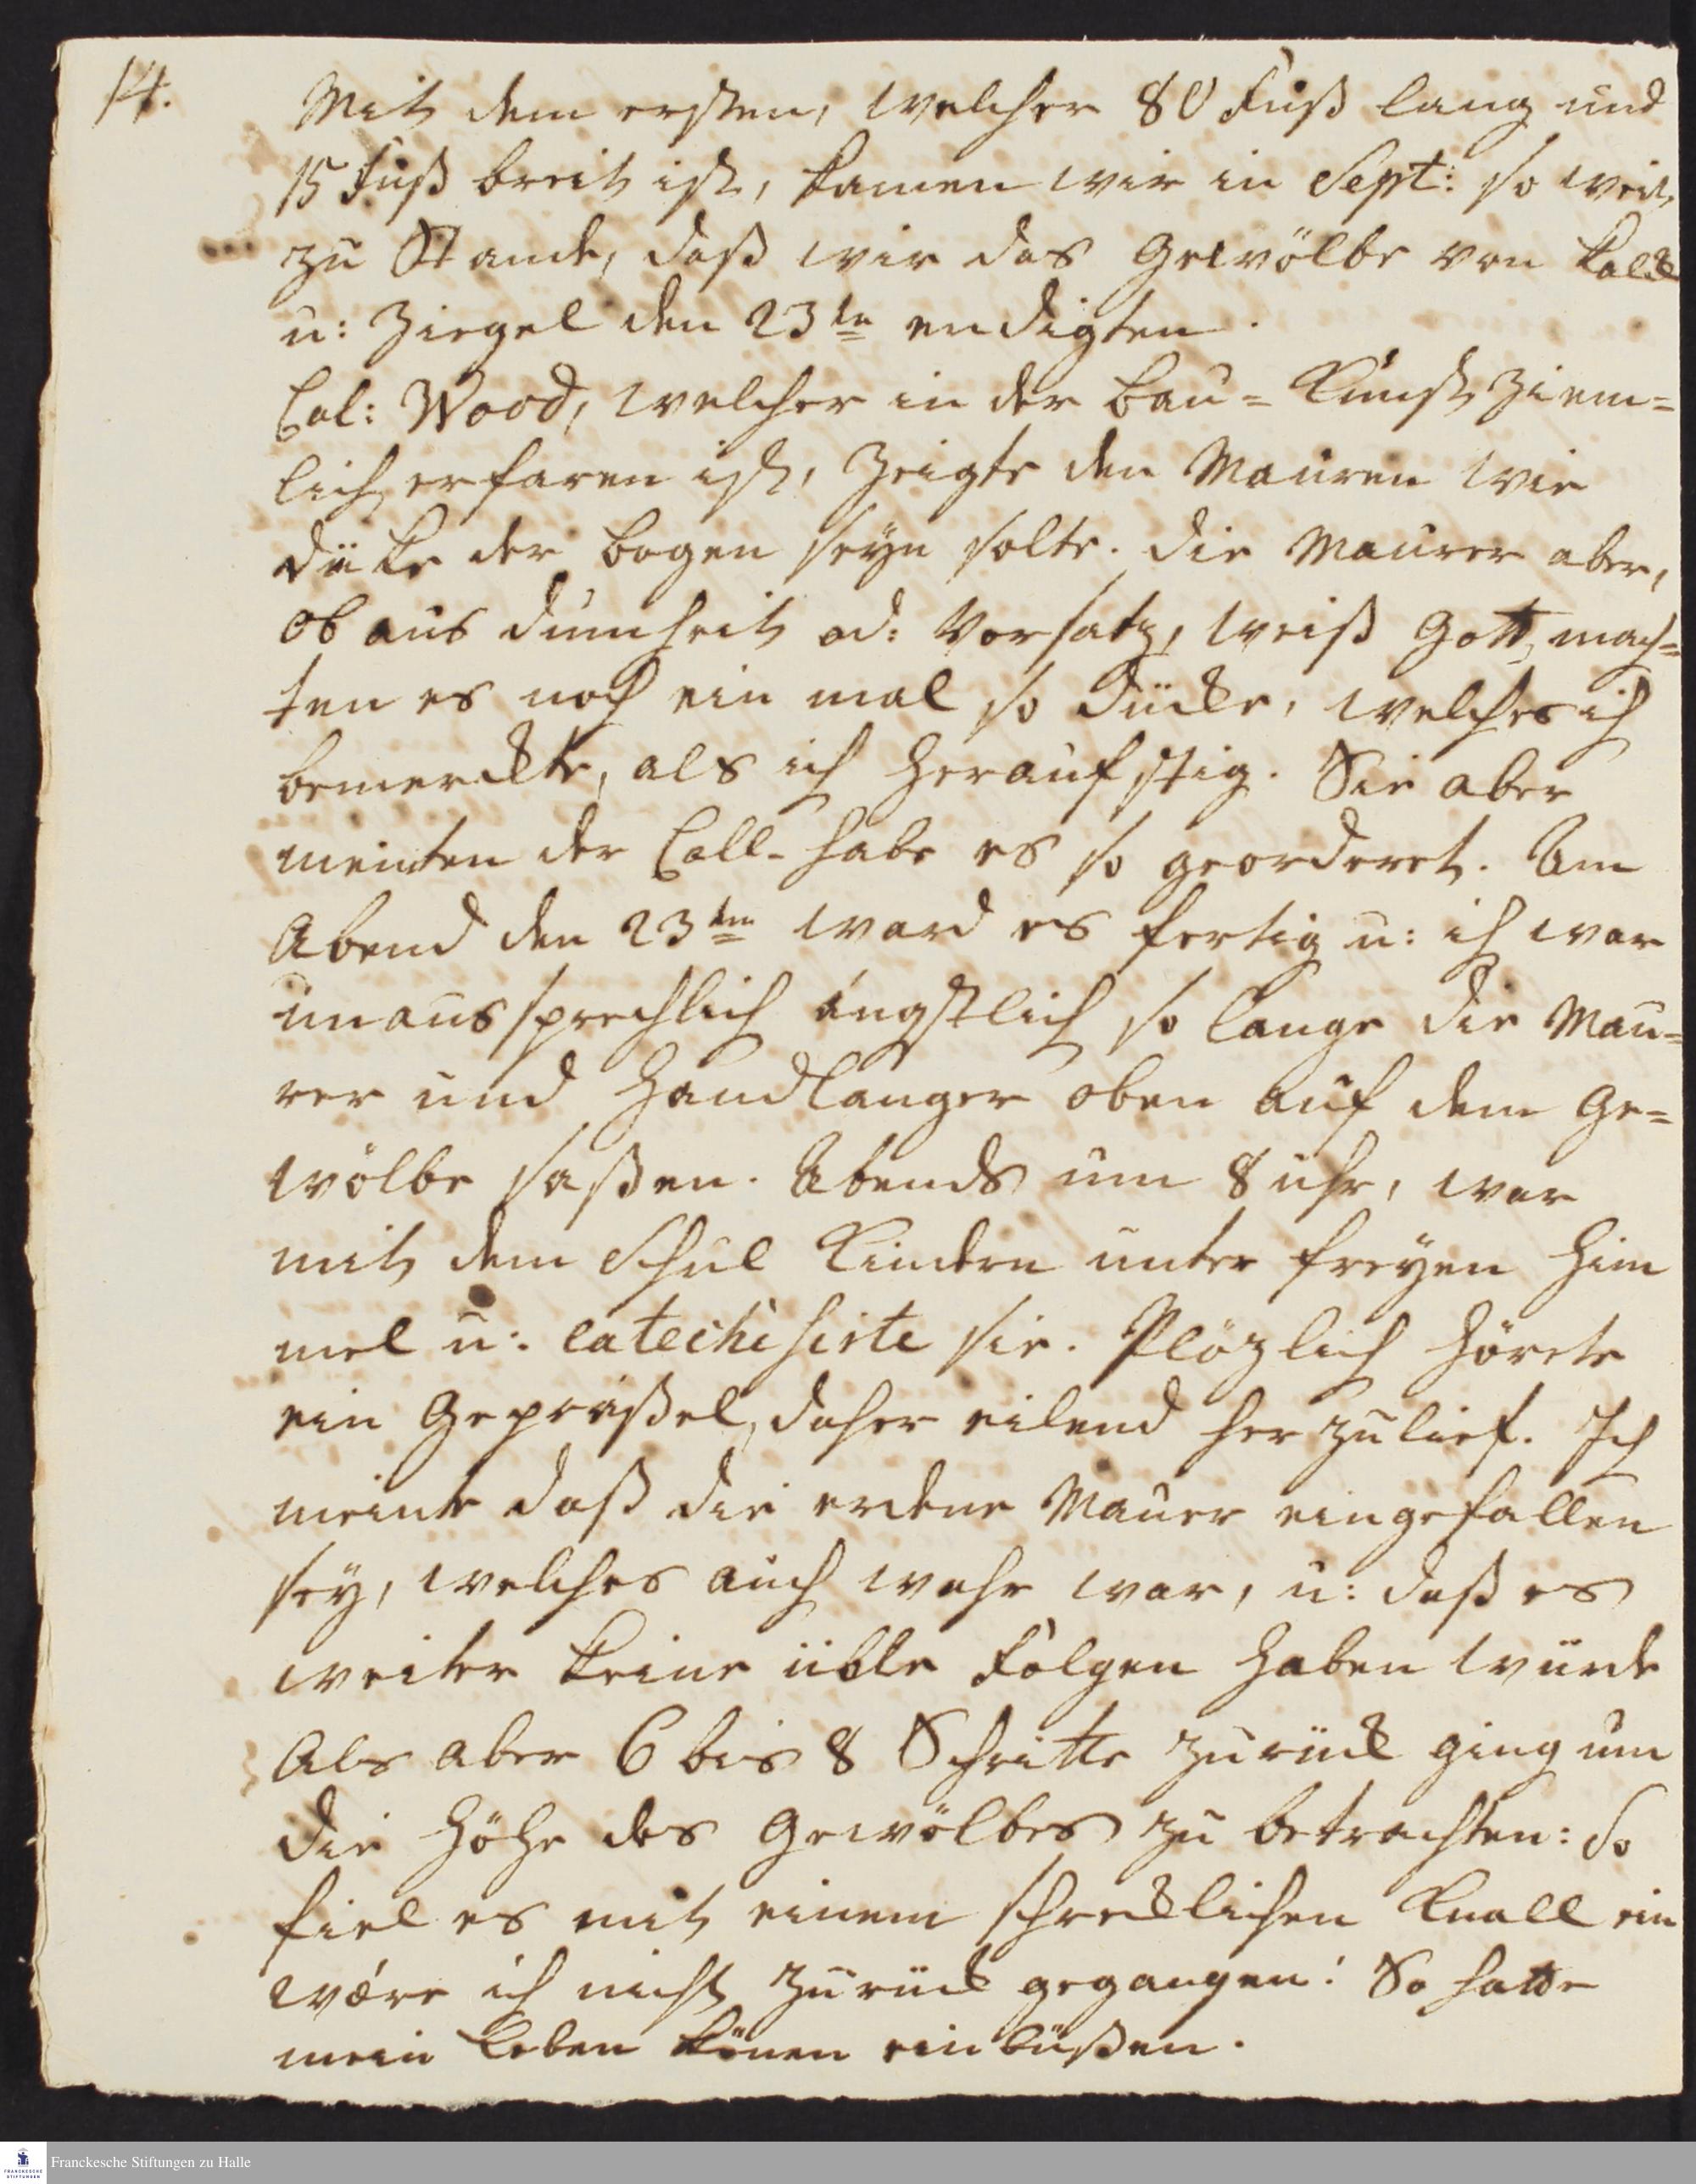 14.
Mit dem ersten, welcher 80 Fuß lang und
15 Fuß breit ist, kamen wir in Sept: so weit
zu Stande, daß wir das Gewölbe von Kalck
u: Ziegel den 23ten endigten.
Col: Wood, welcher in der Bau-Kunst ziem=
lich erfaren ist, zeigte den Mauren wie
düke der Bogen seyn solte. Die Maurer aber,
ob aus Dumheit od: Vorsatz, weiß Gott, mach=
ten es noch ein mal so dücke, welches ich
bemerckte, als ich heraufstig. Sie aber
meinten der Coll- habe es so georderet. Am
Abend den 23ten ward es fertig u: ich war
unaussprechlich ängstlich so lange die Mau=
rer und Handlanger oben auf dem Ge=
wölbe saßen. Abends um 8 uhr, war
mit dem Schul Kindern unter freyen Him
mel u: catechisirte sie. Plözlich hörete
ein Gepraßel, daher eilend herzulief. Ich
meinte daß die erdene Mauer eingefallen
sey, welches auch wahr war, u: daß es
weiter keine üble Folgen haben würde
Als aber 6 bis 8 Schritte zurück ging um
die Höhe des Gewölbes zu betrachten: So
fiel es mit einem schrecklichen Knall ein
wäre ich nicht zurück gegangen: So hatte
mein Leben könen einbüßen.
FRANCKESCHE
STIFTUNGEN
Franckesche Stiftungen zu Halle